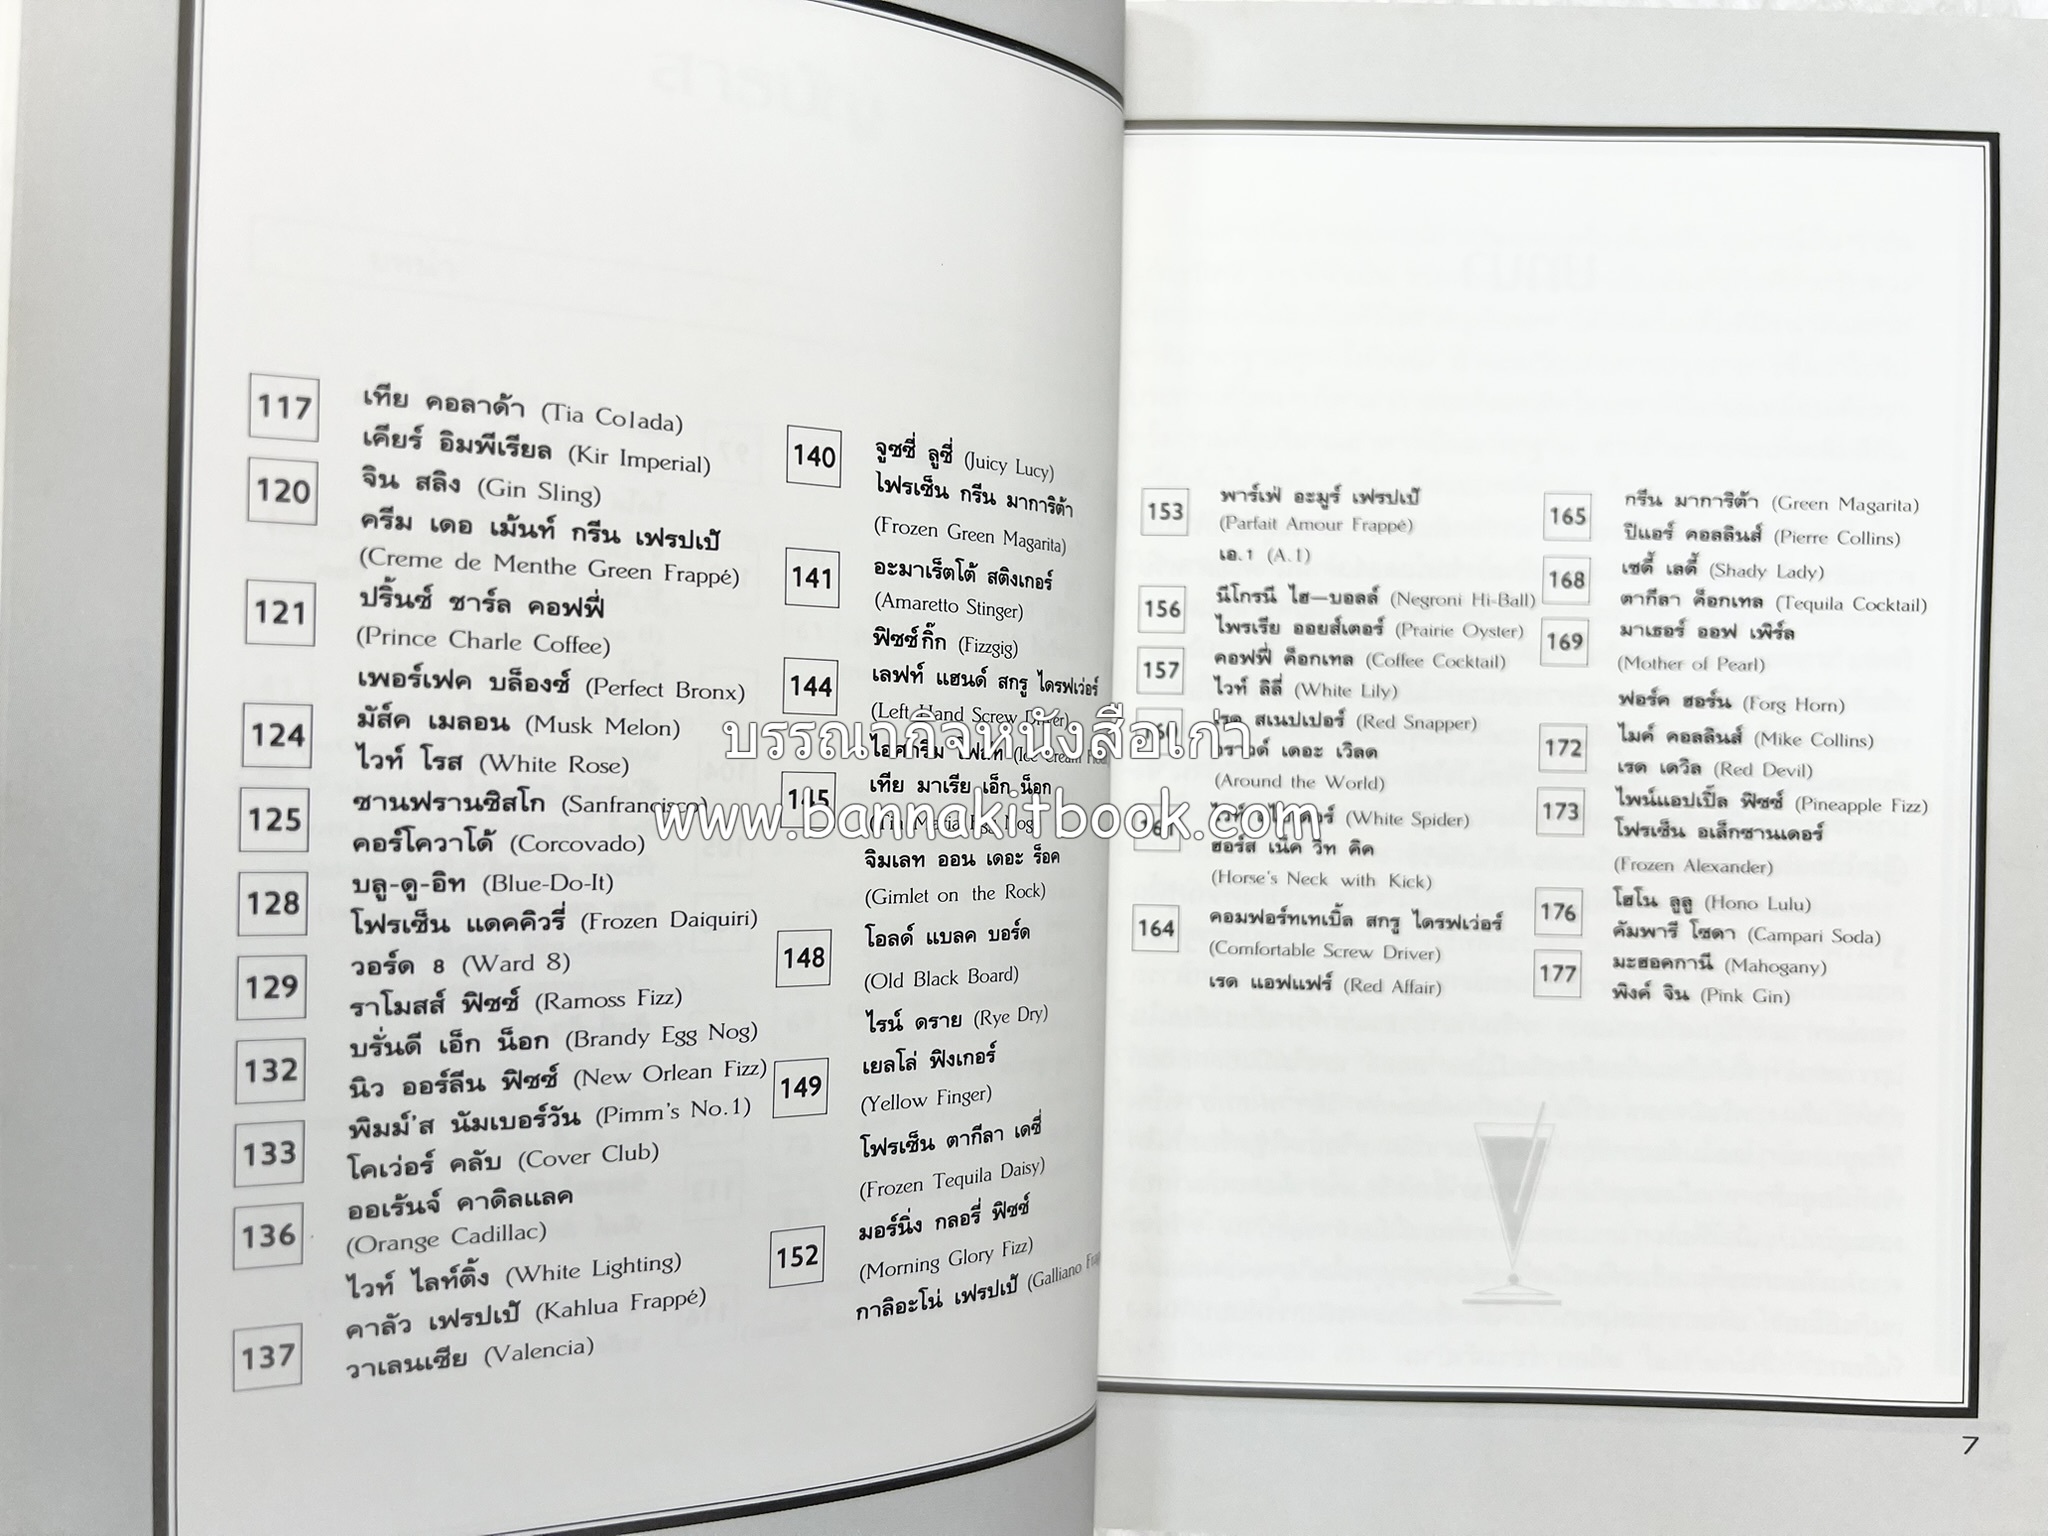 117
เทีย คอลาด้า (Tia Colada)
เคียร์ อิมพีเรียล (Kir Imperial)
120
จิน สลิง (Gin Sling)
ครีม เดอ เม้นท์ กรีน เฟรปเป้
(Creme de Menthe Green Frappé)
121
ปริ้นซ์ ชาร์ล คอฟฟี่
(Prince Charle Coffee)
เพอร์เฟค บล็องซ์ (Perfect Bronx)
124
มัส์ค เมลอน (Musk Melon)
ไวท์ โรส (White Rose)
125
ซานฟรานซิสโก (Sanfrancisco)
คอร์โควาโด้ (Corcovado)
128
บลู-ดู-อิท (Blue-Do-It)
โฟรเซ็น แดคคิวรี่ (Frozen Daiquiri)
129
วอร์ด 8 (Ward 8)
ราโมสส์ ฟิซซ์ (Ramoss Fizz)
132
บรั่นดี เอ็ก น็อก (Brandy Egg Nog)
นิว ออร์ลีน ฟิซซ์ (New Orlean Fizz)
133
พิมม์'ส นัมเบอร์วัน (Pimm's No.1)
โคเว่อร์ คลับ (Cover Club)
136
ออเร้นจ์ คาดิลแลค
(Orange Cadillac)
ไวท์ ไลท์ติ้ง (White Lighting)
137
คาลัว เฟรปเป้ (Kahlua Frappé)
วาเลนเซีย (Valencia)
140
จูซซี่ ลูซี่ (Juicy Lucy)
ไฟรเซ็น กรีน มาการิต้า
(Frozen Green Magarita)
141
อะมาเร็ตโต้ สติงเกอร์
(Amaretto Stinger)
ฟิซซ์กิ๊ก (Fizzgig)
144
เลฟท์ แฮนด์ สกรู ไดรฟเว่อร์
(Left Hand Screw Driver)
ไอศกรีม โฟลท (Ice Cream
145
เทีย มาเรีย เอ็ก น็อก
(Tia Maria Egg Nog)
จิมเลท ออน เดอะ ร็อค
(Gimlet on the Rock)
148
โอลด์ แบลค บอร์ด
(Old Black Board)
ไรน์ ดราย (Rye Dry)
149
เยลโล่ ฟิงเกอร์
(Yellow Finger)
โฟรเซ็น ตากีลา เดซี่
(Frozen Tequila Daisy)
152
มอร์นิ่ง กลอรี่ ฟิซซ์
(Morning Glory Fizz)
กาลิอะโน่ เฟรปเป้ (Galliano
153
พาร์เฟ่ อะมูร์ เฟรปเป้
(Parfait Amour Frappé)
เอ.1 (A.1)
156
นีโกรนี ไฮ–บอลล์ (Negroni Hi-Ball)
ไพรเรีย ออยส์เตอร์ (Prairie Oyster)
157
คอฟฟี่ ค็อกเทล (Coffee Cocktail)
ไวท์ ลิลี่ (White Lily)
เรด สเนปเปอร์ (Red Snapper)
อราวด์ เดอะ เวิลด
(Around the World)
ไวท์ สไปเดอร์ (White Spider)
ฮอร์ส เน็ค วีท คิค
(Horse's Neck with Kick)
164
คอมฟอร์ทเทเบิ้ล สกรู ไดรฟเว่อร์
(Comfortable Screw Driver)
เรด แอฟแฟร์ (Red Affair)
165
กรีน มาการิต้า (Green Magarita)
ปิแอร์ คอลลินส์ (Pierre Collins)
168
เชดี้ เลดี้ (Shady Lady)
ตากีลา ค็อกเทล (Tequila Cocktail)
169
มาเธอร์ ออฟ เพิร์ล
(Mother of Pearl)
ฟอร์ค ฮอร์น (Forg Horn)
172
ไมค์ คอลลินส์ (Mike Collins)
เรด เดวิล (Red Devil)
173
ไพน์แอปเปิ้ล ฟิซซ์ (Pineapple Fizz)
โฟรเซ็น อเล็กซานเดอร์
(Frozen Alexander)
176
โฮโน ลูลู (Hono Lulu)
คัมพารี โซดา (Campari Soda)
177
มะฮอคกานี (Mahogany)
พิงค์ จิน (Pink Gin)
7
บรรณากิจหนังสือเก่า
www.bannakitbook.com